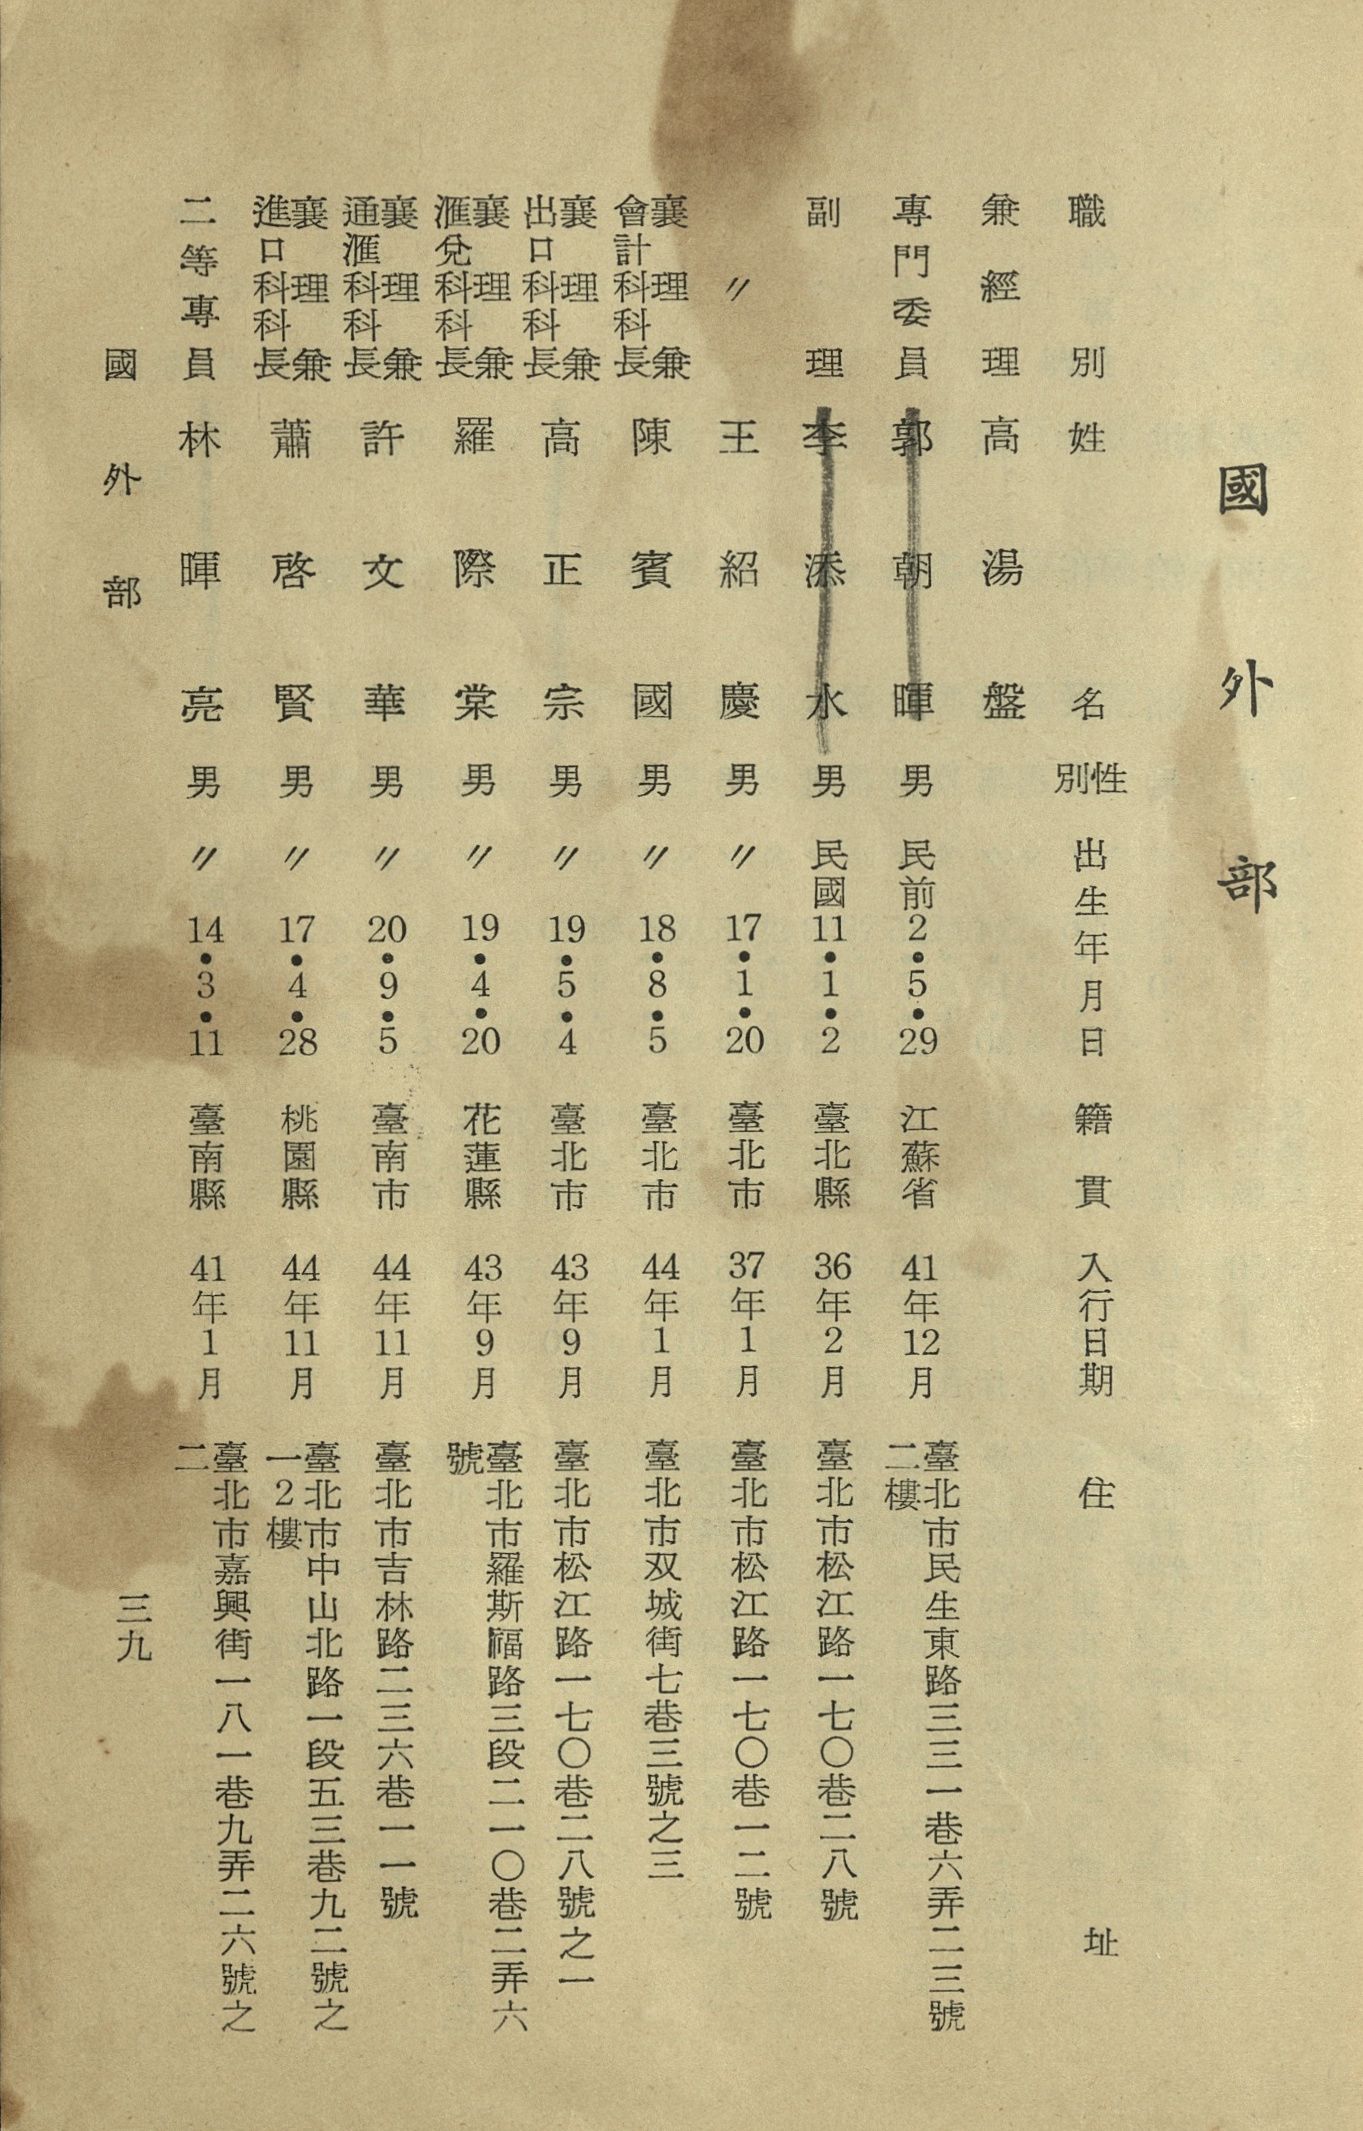 國外部
職別 姓名 性別 出生年月日 籍貫 入行日期 住址
兼經理 高湯盤
專門委員 郭朝暉 男 民前2•5•29 江蘇省 41年12月 臺北市民生東路三三一巷六弄二三號二樓
副理 李添水 男 民國11•1•2 臺北縣 36年2月 臺北市松江路一七〇巷二八號
〃 王紹慶 男 〃17•1•20 臺北市 37年1月 臺北市松江路一七〇巷一二號
襄理兼會計科科長 陳賓國 男 〃18•8•5 臺北市 44年1月 臺北市双城街七巷三號之三
襄理兼出口科科長 高正宗 男 〃19•5•4 臺北市 43年9月 臺北市松江路一七〇巷二八號之一
襄理兼滙兌科科長 羅際棠 男 〃19•4•20 花蓮縣 43年9月 臺北市羅斯福路三段二一〇巷二弄六號
襄理兼通滙科科長 許文華 男 〃20•9•5 臺南市 44年11月 臺北市吉林路二三六巷一一號
襄理兼進口科科長 蕭啓賢 男 〃17•4•28 桃園縣 44年11月 臺北市中山北路一段五三巷九二號之一2樓
二等專員 林暉亮 男 〃14•3•11 臺南縣 41年1月 臺北市嘉興街一八一巷九弄二六號之二
國外部 三九